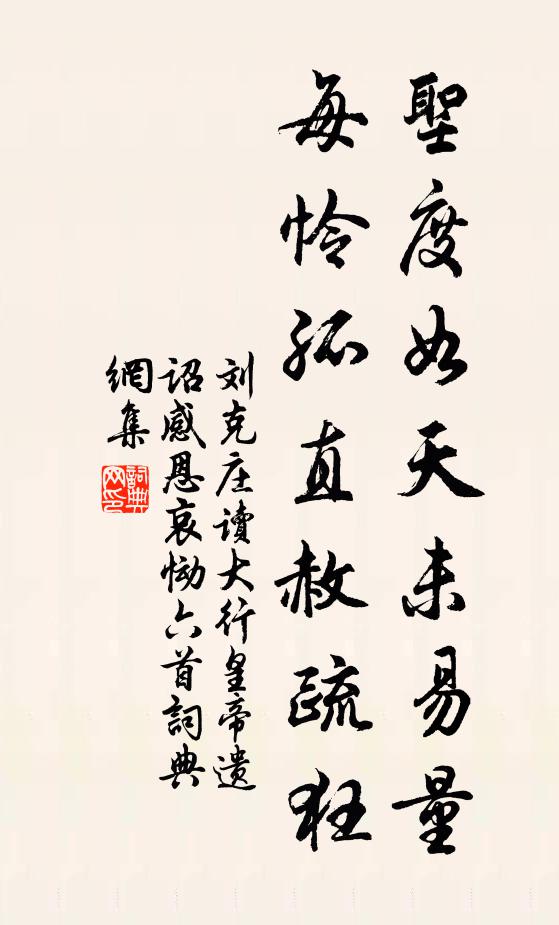 聖度如天未易量
每怜孤直赦疏狂
刘克庄讀大行皇帝遺
詔感恩哀恸六首詞典
網集
詞典
网印